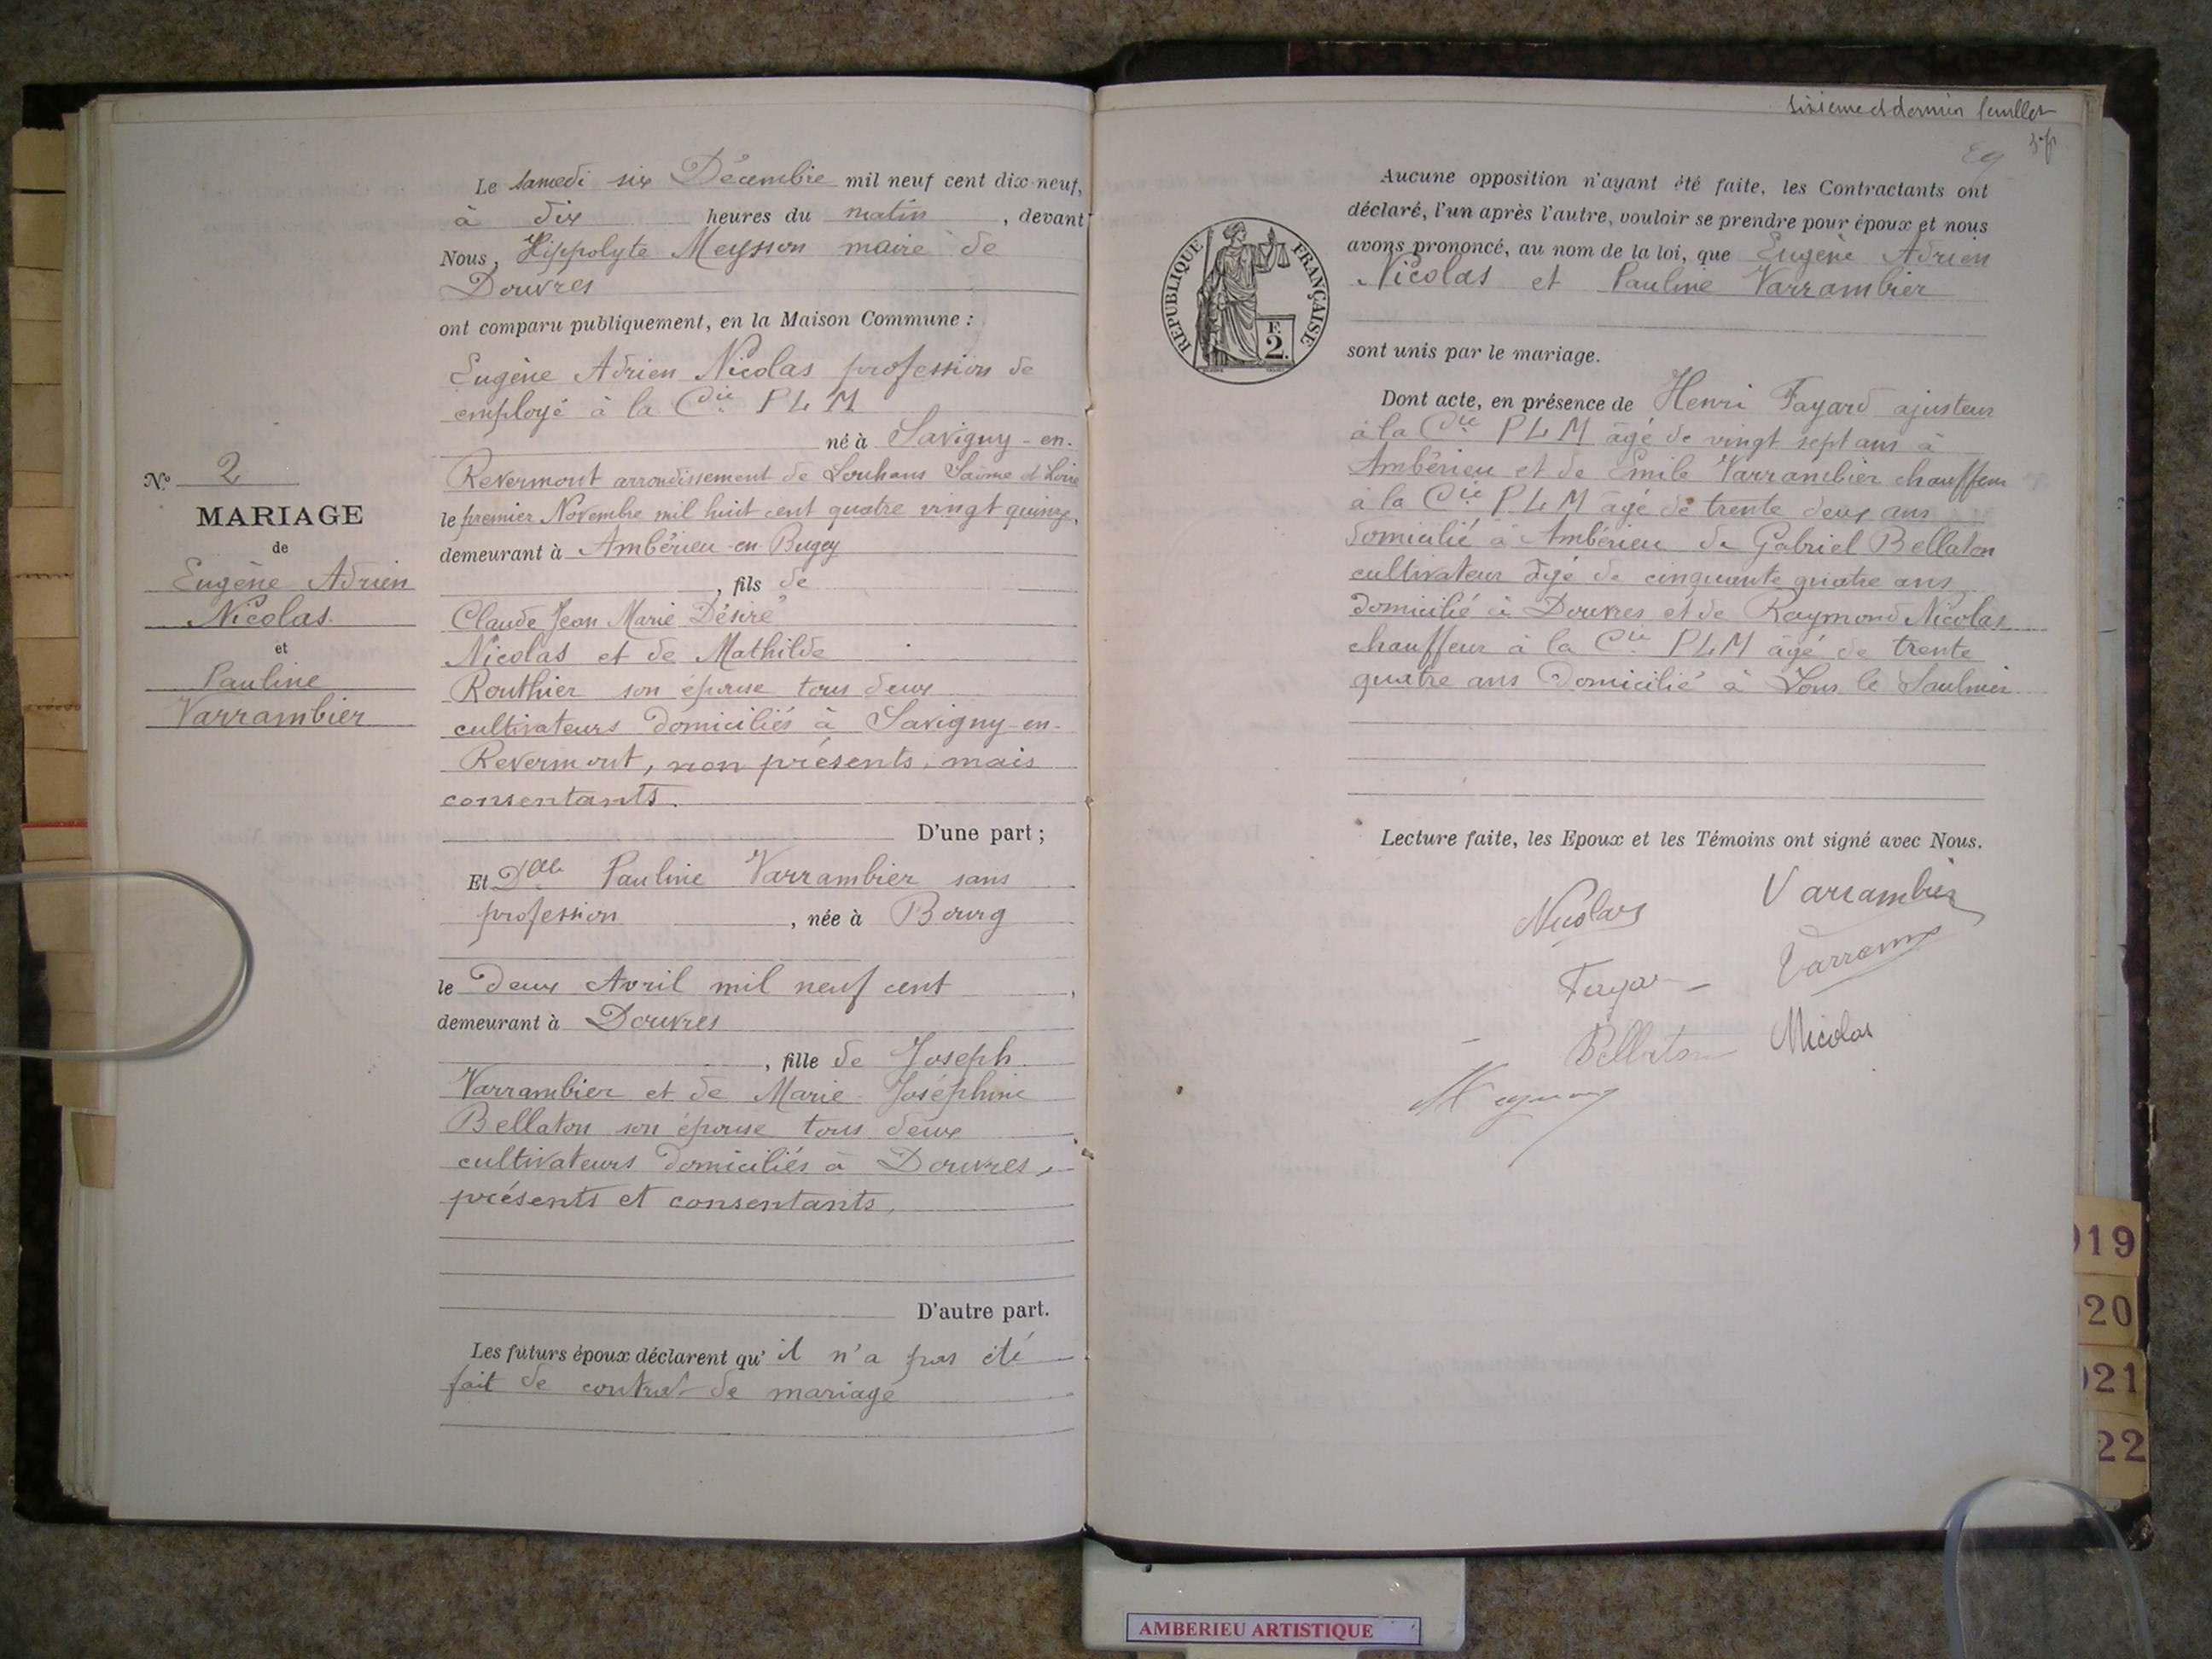 Le samedi six Décembre mil neuf cent dix-neuf,
à dix heures du matin, devant
Nous, Hippolyte Meysson maire de
Douvres
ont comparu publiquement, en la Maison Commune :
Eugène Adrien Nicolas profession de
employé à la Cie PLM
né à Savigny-en-
Revermont arrondissement de Louhans Saône et Loire
le premier Novembre mil huit cent quatre vingt quinze,
demeurant à Ambérieu-en-Bugey
, fils de
Claude Jean Marie Désiré
Nicolas et de Mathilde
Routhier son épouse tous deux
cultivateurs domiciliés à Savigny-en-
Revermont, non présents, mais
consentants.
D'une part ;
Et Dlle Pauline Varrambier sans
profession, née à Bourg
le deux Avril mil neuf cent,
demeurant à Douvres
, fille de Joseph
Varrambier et de Marie-Joséphine
Bellaton son épouse tous deux
cultivateurs domiciliés à Douvres,
présents et consentants,
D'autre part.
Les futurs époux déclarent qu'il n'a pas été
fait de contrat de mariage
No 2
MARIAGE
de
Eugène Adrien
Nicolas
et
Pauline
Varrambier
sixième et dernier feuillet
Aucune opposition n'ayant été faite, les Contractants ont
déclaré, l'un après l'autre, vouloir se prendre pour époux et nous
avons prononcé, au nom de la loi, que Eugène Adrien
Nicolas et Pauline Varrambier
sont unis par le mariage.
RÉPUBLIQUE FRANÇAISE
F.
2.
Dont acte, en présence de Henri Fayard ajusteur
à la Cie PLM âgé de vingt sept ans à
Ambérieu et de Emile Varrambier chauffeur
à la Cie PLM âgé de trente deux ans
domicilié à Ambérieu de Gabriel Bellaton
cultivateur âgé de cinquante quatre ans
domicilié à Douvres et de Raymond Nicolas
chauffeur à la Cie PLM âgé de trente
quatre ans domicilié à Lons le Saulnier
Lecture faite, les Epoux et les Témoins ont signé avec Nous.
Nicolas Varrambier
Bellaton Nicolas
919
20
921
22
AMBERIEU ARTISTIQUE